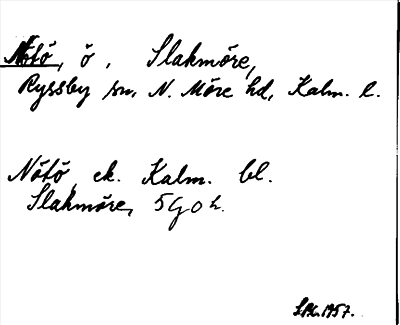 Nötö, ö, Slakmöre,
Ryssby sn, N. Möre hd, Kalm. l.
Nötö, ek. Kalm. bl.
Slakmöre, 5 G o h.
1957.